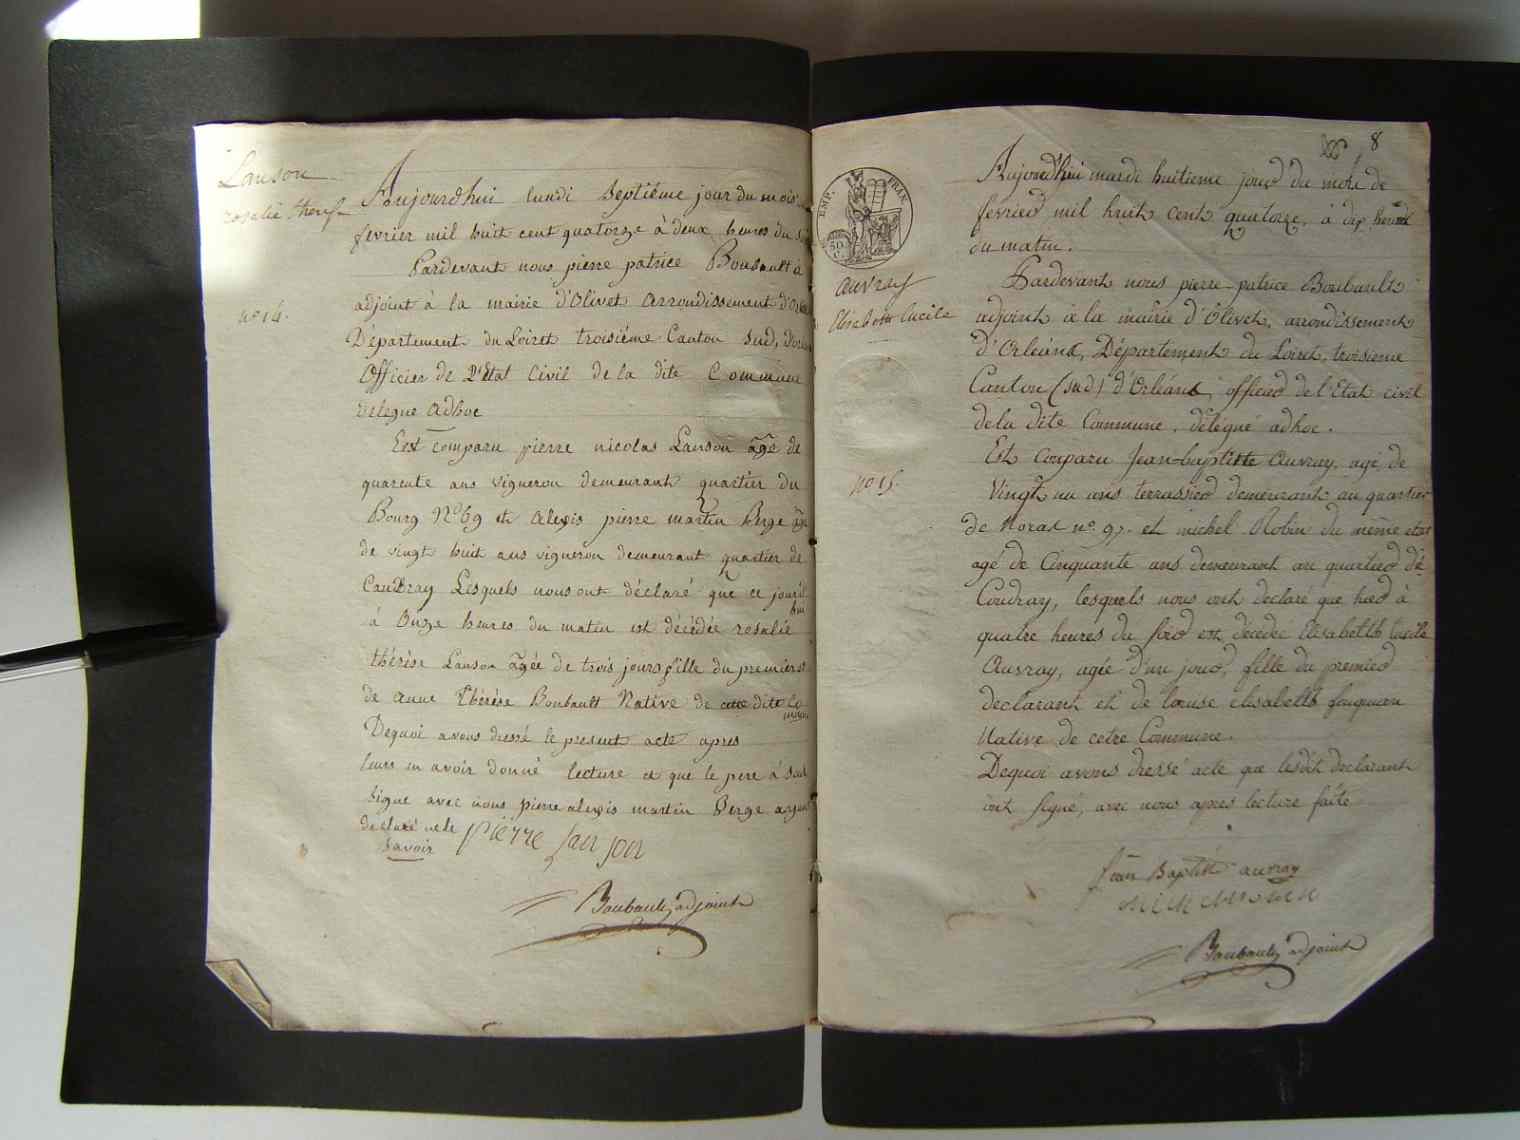 Lanson
rosalie theres
No 14.
Aujourdhui lundi Septième jour du mois
fevrier mil huit cent quatorze à deux heures du
Pardevant nous pierre patrice Boubault
adjoint à la mairie d'Olivet arrondissement d'Orleans
Département du Loiret troisiéme Canton Sud, d'orleans
Officier de l'Etat Civil de la dite Commune
delegue adhoc
Est comparu pierre nicolas Lanson agé de
quarente ans vigneron demeurant quartier du
Bourg No 69 et alexis pierre martin Berge age
de vingt huit ans vigneron demeurant quartier de
Caudray Lesquels nous ont déclaré que ce jourd'hui
à Onze heures du matin est décédée rosalie
thérèse Lanson agée de trois jours fille du premier
de anne Thérèse Boubault Native de cette dite Commune
Dequoi avons dressé le present acte apres
leurs en avoir donné lecture et que le pere à
signe avec nous pierre alexis martin Berge ayant
déclaré ne le
savoir
pierre Lanson
Boubault adjoint
8
EMP. FRAN.
50
C.
auvray
Elisabeth lucile
No 15.
Aujourd'hui mardi huitieme jour du mois de
fevrier mil huit cent quatorze, à dix heures
du matin.
Pardevant nous pierre patrice Boubault
adjoint à la mairie d'Olivet, arrondissement
d'Orleans, Département du Loiret, troisieme
Canton (sud) d'Orléans, officier de l'Etat civil
de la dite Commune, délégué adhoc.
Est Comparu Jean-baptiste auvray, agé de
Vingt un ans terrassier demeurant au quartier
de Noras no. 97. et michel Robin du même etat
agé de Cinquante ans demeurant au quartier de
Coudray, lesquels nous ont declaré que hier à
quatre heures du soir est décédé Elisabeth lucile
Auvray, agée d'un jour, fille du premier
declarant et de elisabeth
Native de cette Commune.
Dequoi avons dressé acte que lesdit declarant
ont signé, avec nous apres lecture faite
Jean Baptiste auvray
Boubault adjoint